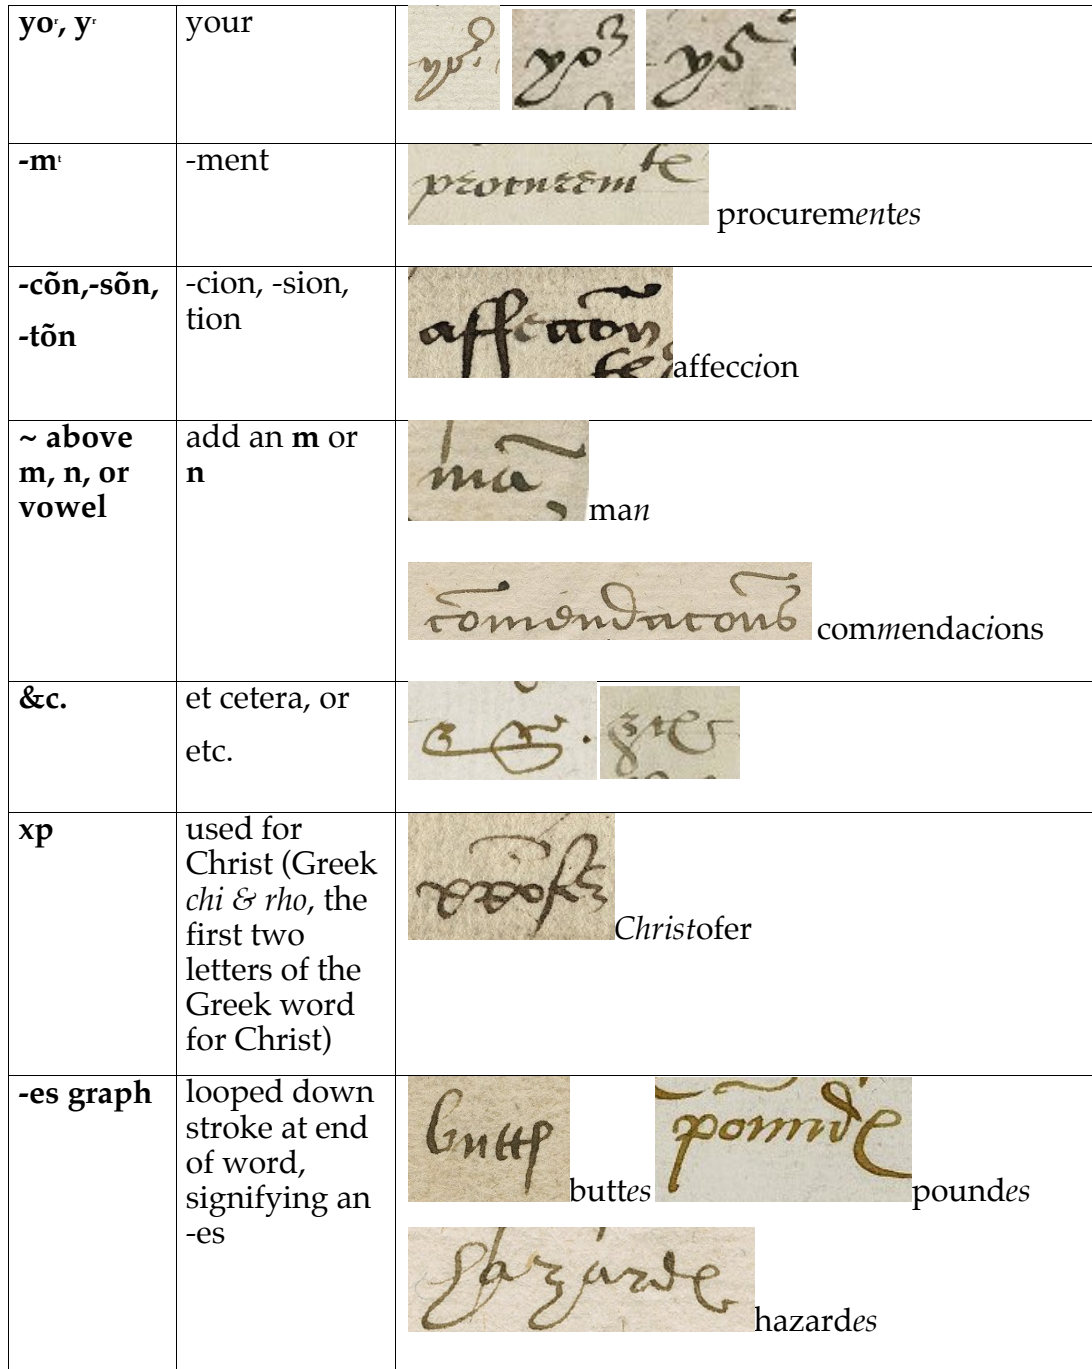 yoʳ, yʳ your
-mᵗ -ment
procurementes
-cõn,-sõn, -cion, -sion,
-tõn tion
affeccion
~ above add an m or
m, n, or n
vowel
man
commendacions
&c. et cetera, or
etc.
xp used for
Christ (Greek
chi & rho, the
first two
letters of the
Greek word
for Christ)
Christofer
-es graph looped down
stroke at end
of word,
signifying an
-es
buttes poundes
hazardes